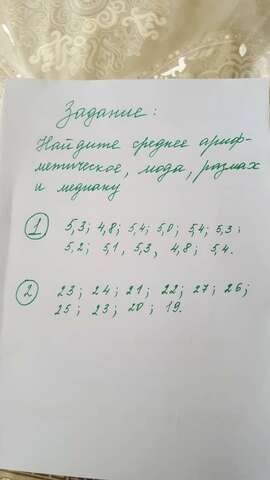 Задание:
Найдите среднее ариф-
метическое, мода, размах
и медиану
1 5,3; 4,8; 5,4; 5,0; 5,4; 5,3;
5,2; 5,1, 5,3, 4,8; 5,4.
2 23; 24; 21; 22; 27; 26;
25; 23; 20; 19.